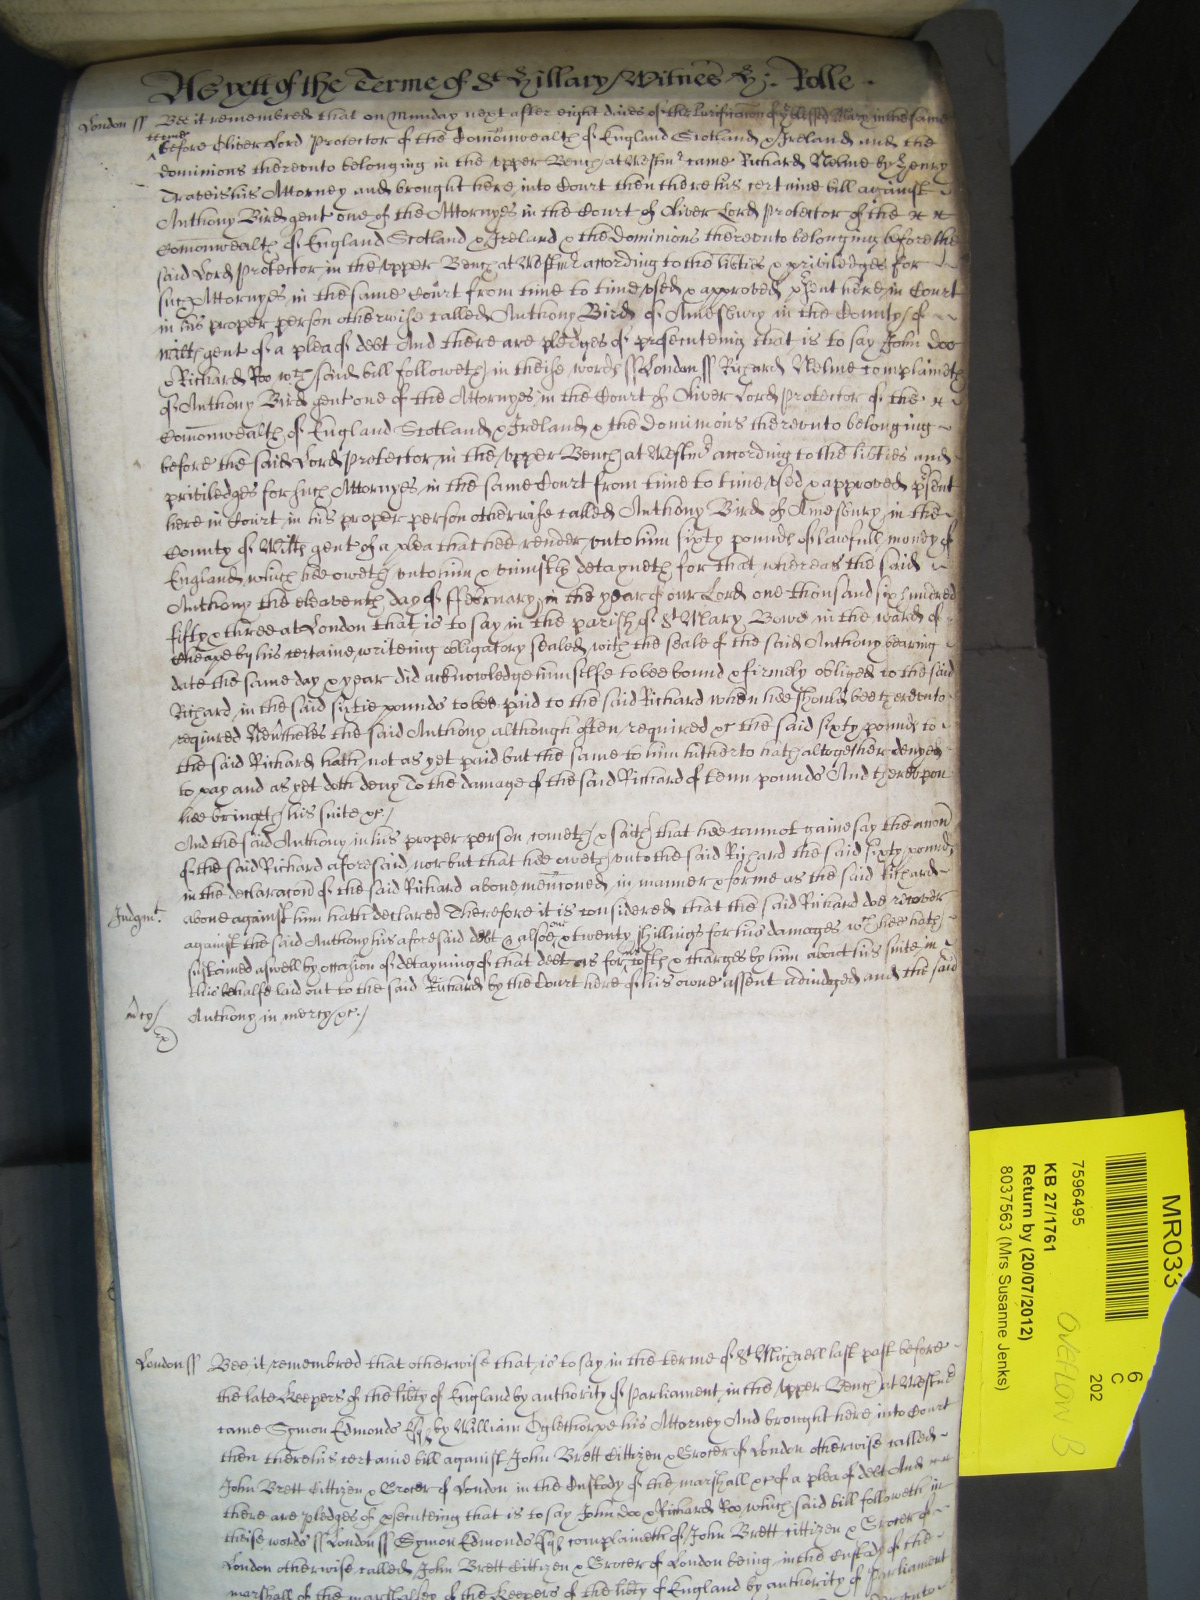 As yett of the Terme of St Hillary Witnes H: Rolle
London ss Bee it remembred that on Munday next after eight daies of the Purificacon of ye blessed Mary in the same
terme
before Oliver Lord Protector of the Comonwealth of England Scotland & Ireland and the
dominions thereunto belonging in the upper Bench at Westmr came Richard Nelme by Henry
Traveis his Attorney and brought here into Court then there his certaine bill against
Anthony Bird gent one of the Attornyes in the Court of Oliver Lord Protector of the
Comonwealth of England Scotland & Ireland & the Dominions thereunto belonging before the
said Lord Protector in the upper Bench at Westmr according to the libties & priviledges for
such Attornyes in the same Court from time to time used & approved psent here in Court
in his proper person otherwise called Anthony Bird of Amesbury in the County of
Wilts gent of a plea of debt And there are pledges of prosecuteing that is to say John Doo
& Richard Roo wch said bill followeth in theise words ss London ss Richard Nelme complaineth
of Anthony Bird gent one of the Attornyes in the Court of Oliver Lord Protector of the
Comonwealth of England Scotland & Ireland & the Dominions thereunto belonging
before the said Lord Protector in the upper Bench at Westmr according to the libties and
priviledges for such Attornyes in the same Court from time to time used & approved psent
here in Court in his proper person otherwise called Anthony Bird of Amesbury in the
County of Wilts gent of a plea that hee render unto him sixty pounds of lawfull money of
England which hee oweth unto him & uniustly detayneth for that whereas the said
Anthony the eleaventh day of ffebruary in the year of our Lord one thousand six hundred
fifty & three at London that is to say in the parish of St Mary Bowe in the ward of
Cheape by his certaine writeing obligatory sealed with the seale of the said Anthony bearing
date the same day & year did acknowledge himselfe to bee bound & firmely obliged to the said
Richard in the said sixtie pounds to bee paid to the said Richard when hee should bee thereunto
required Nevtheles the said Anthony although often required &c the said sixty pounds to
the said Richard hath not as yet paid but the same to him hitherto hath altogether denyed
to pay and as yet doth deny To the damage of the said Richard of tenn pounds And thereupon
hee bringeth his suite &c
And the said Anthony in his proper person cometh & saith that hee cannot gaine say the accon
of the said Richard aforesaid nor but that hee oweth unto the said Richard the said sixty pounds
in the declaracon of the said Richard above menconed in manner & forme as the said Richard
Judgmt. above against him hath declared Therefore it is considered that the said Richard doe recover
against the said Anthony his aforesaid debt & alsoe twenty shillings for his damages wch hee hath
sustained aswell by occasion of detayning of that debt as for costs & charges by him about his suite in
this behalfe laid out to the said Richard by the Court here of his owne assent adiudged and the said
mcy Anthony in mercy &c
London ss Bee it remembred that otherwise that is to say in the terme of St Michaell last past before
the late Keepers of the libty of England by authority of Parliament in the upper Bench at Westmr
came Symon Edmonds Esq by William Oglethorpe his Attorney And brought here into Court
then there his certaine bill against John Brett Cittizen & Grocer of London otherwise called
John Brett Cittizen & Grocer of London in the Custody of the marshall &c of a plea of debt And
there are pledges of psecuteing that is to say John Doo & Richard Roo which said bill followeth in
theise words ss London ss Symon Edmonds Esq complaineth of John Brett Cittizen & Grocer of
London otherwise called John Brett Cittizen & Grocer of London being in the Custody of the
marshall of the marshalsey of the Keepers of the libty of England by authority of Parliament
MR033
6
C
202
7596495
KB 27/1761
Return by (20/07/2012)
8037563 (Mrs Susanne Jenks)
Overflow B